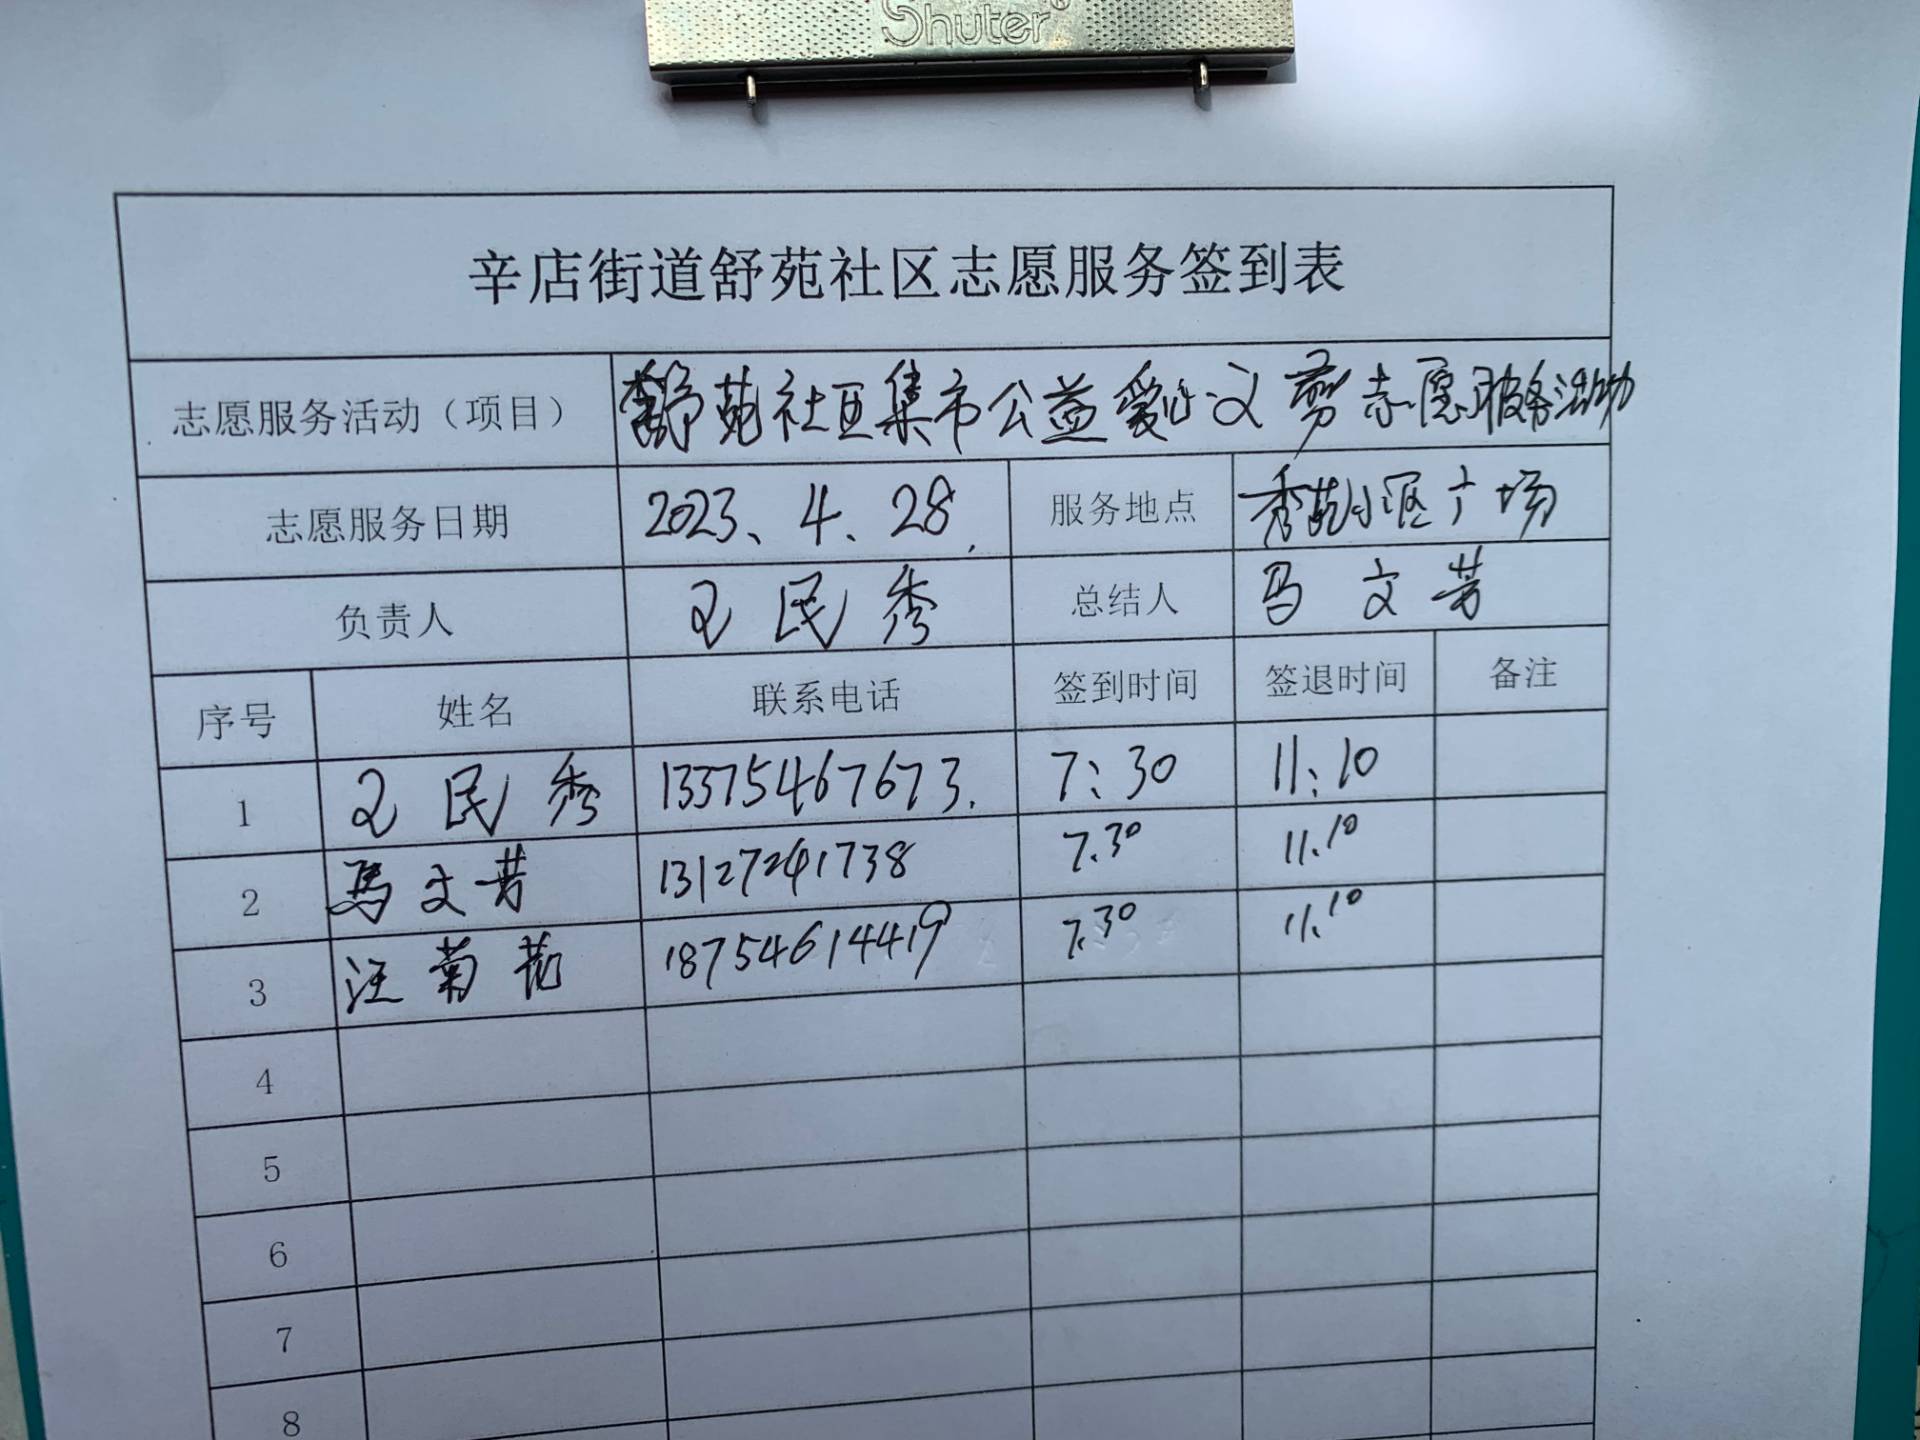 Shuter
辛店街道舒苑社区志愿服务签到表
志愿服务活动（项目） 舒苑社区集市公益爱心义剪志愿服务活动
志愿服务日期 2023、4、28. 服务地点 秀苑小区广场
负责人 王民秀 总结人 马文芳
序号 姓名 联系电话 签到时间 签退时间 备注
1 王民秀 13375467673. 7:30 11:10
2 馬文芳 13127241738 7.30 11.10
3 汪菊花 18754614419 7.30 11.10
4
5
6
7
8